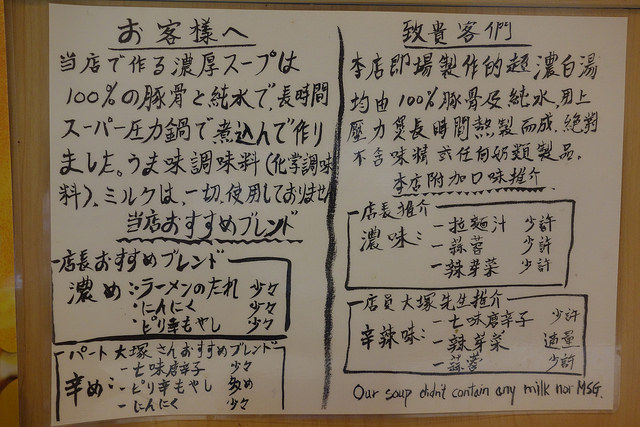 お客様へ
当店で作る濃厚スープは
100%の豚骨と純水で、長時間
スーパー圧力鍋で煮込んで作り
ました。うま味調味料(化学調味
料)、ミルクは、一切、使用しておりません
当店おすすめブレンド
店長おすすめブレンド
濃め:-ラーメンのたれ 少々
-にんにく 少々
-ピリ辛もやし 少々
パート大塚さんおすすめブレンド
-七味唐辛子 少々
辛め:-ピリ辛もやし 多め
-にんにく 少々
致貴客們
本店即場製作的超濃白湯
均由100%豚骨及純水,用上
壓力煲長時間熬製而成,絕對
不含味精或任何奶類製品。
本店附加口味推介
店長推介
濃味:-拉麵汁 少許
-蒜蓉 少許
-辣芽菜 少許
店員大塚先生推介
-七味唐辛子 少許
辛辣味:-辣芽菜 適量
-蒜蓉 少許
Our soup didn't contain any milk nor MSG.